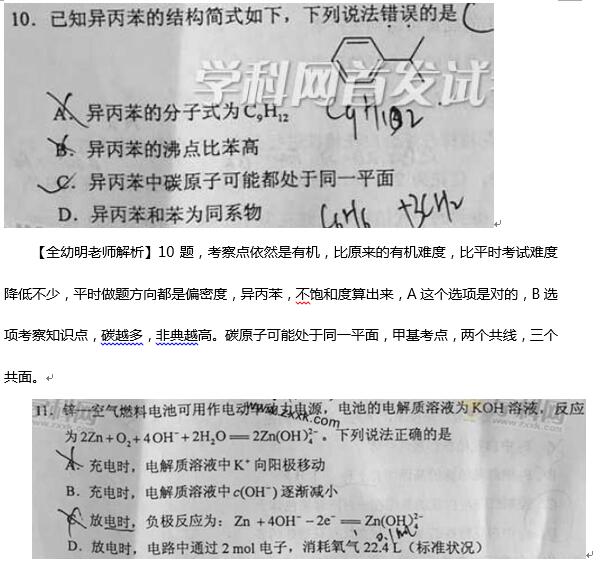 10．已知异丙苯的结构简式如下，下列说法错误的是
学科网首发试
A．异丙苯的分子式为C₉H₁₂
B．异丙苯的沸点比苯高
C．异丙苯中碳原子可能都处于同一平面
D．异丙苯和苯为同系物
C₆H₆ +3CH₂
【全幼明老师解析】10 题，考察点依然是有机，比原来的有机难度，比平时考试难度
降低不少，平时做题方向都是偏密度，异丙苯，不饱和度算出来，A 这个选项是对的，B 选
项考察知识点，碳越多，非典越高。碳原子可能处于同一平面，甲基考点，两个共线，三个
共面。
11．锌—空气燃料电池可用作电动车动力电源，电池的电解质溶液为KOH溶液，反应
www.zxxk.com
为2Zn+O₂+4OH⁻+2H₂O══2Zn(OH)₄²⁻。下列说法正确的是
A．充电时，电解质溶液中K⁺向阳极移动
B．充电时，电解质溶液中c(OH⁻)逐渐减小
C．放电时，负极反应为：Zn+4OH⁻-2e⁻══Zn(OH)₄²⁻
D．放电时，电路中通过2 mol电子，消耗氧气22.4 L（标准状况）